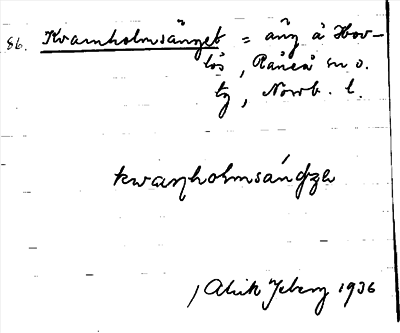 86. Kvarnholmsänget = äng å Hov-
lös, Råneå sn o.
tg, Norrb. l.
kwaɳholmsáɳʤə
Alrik Byberg 1936